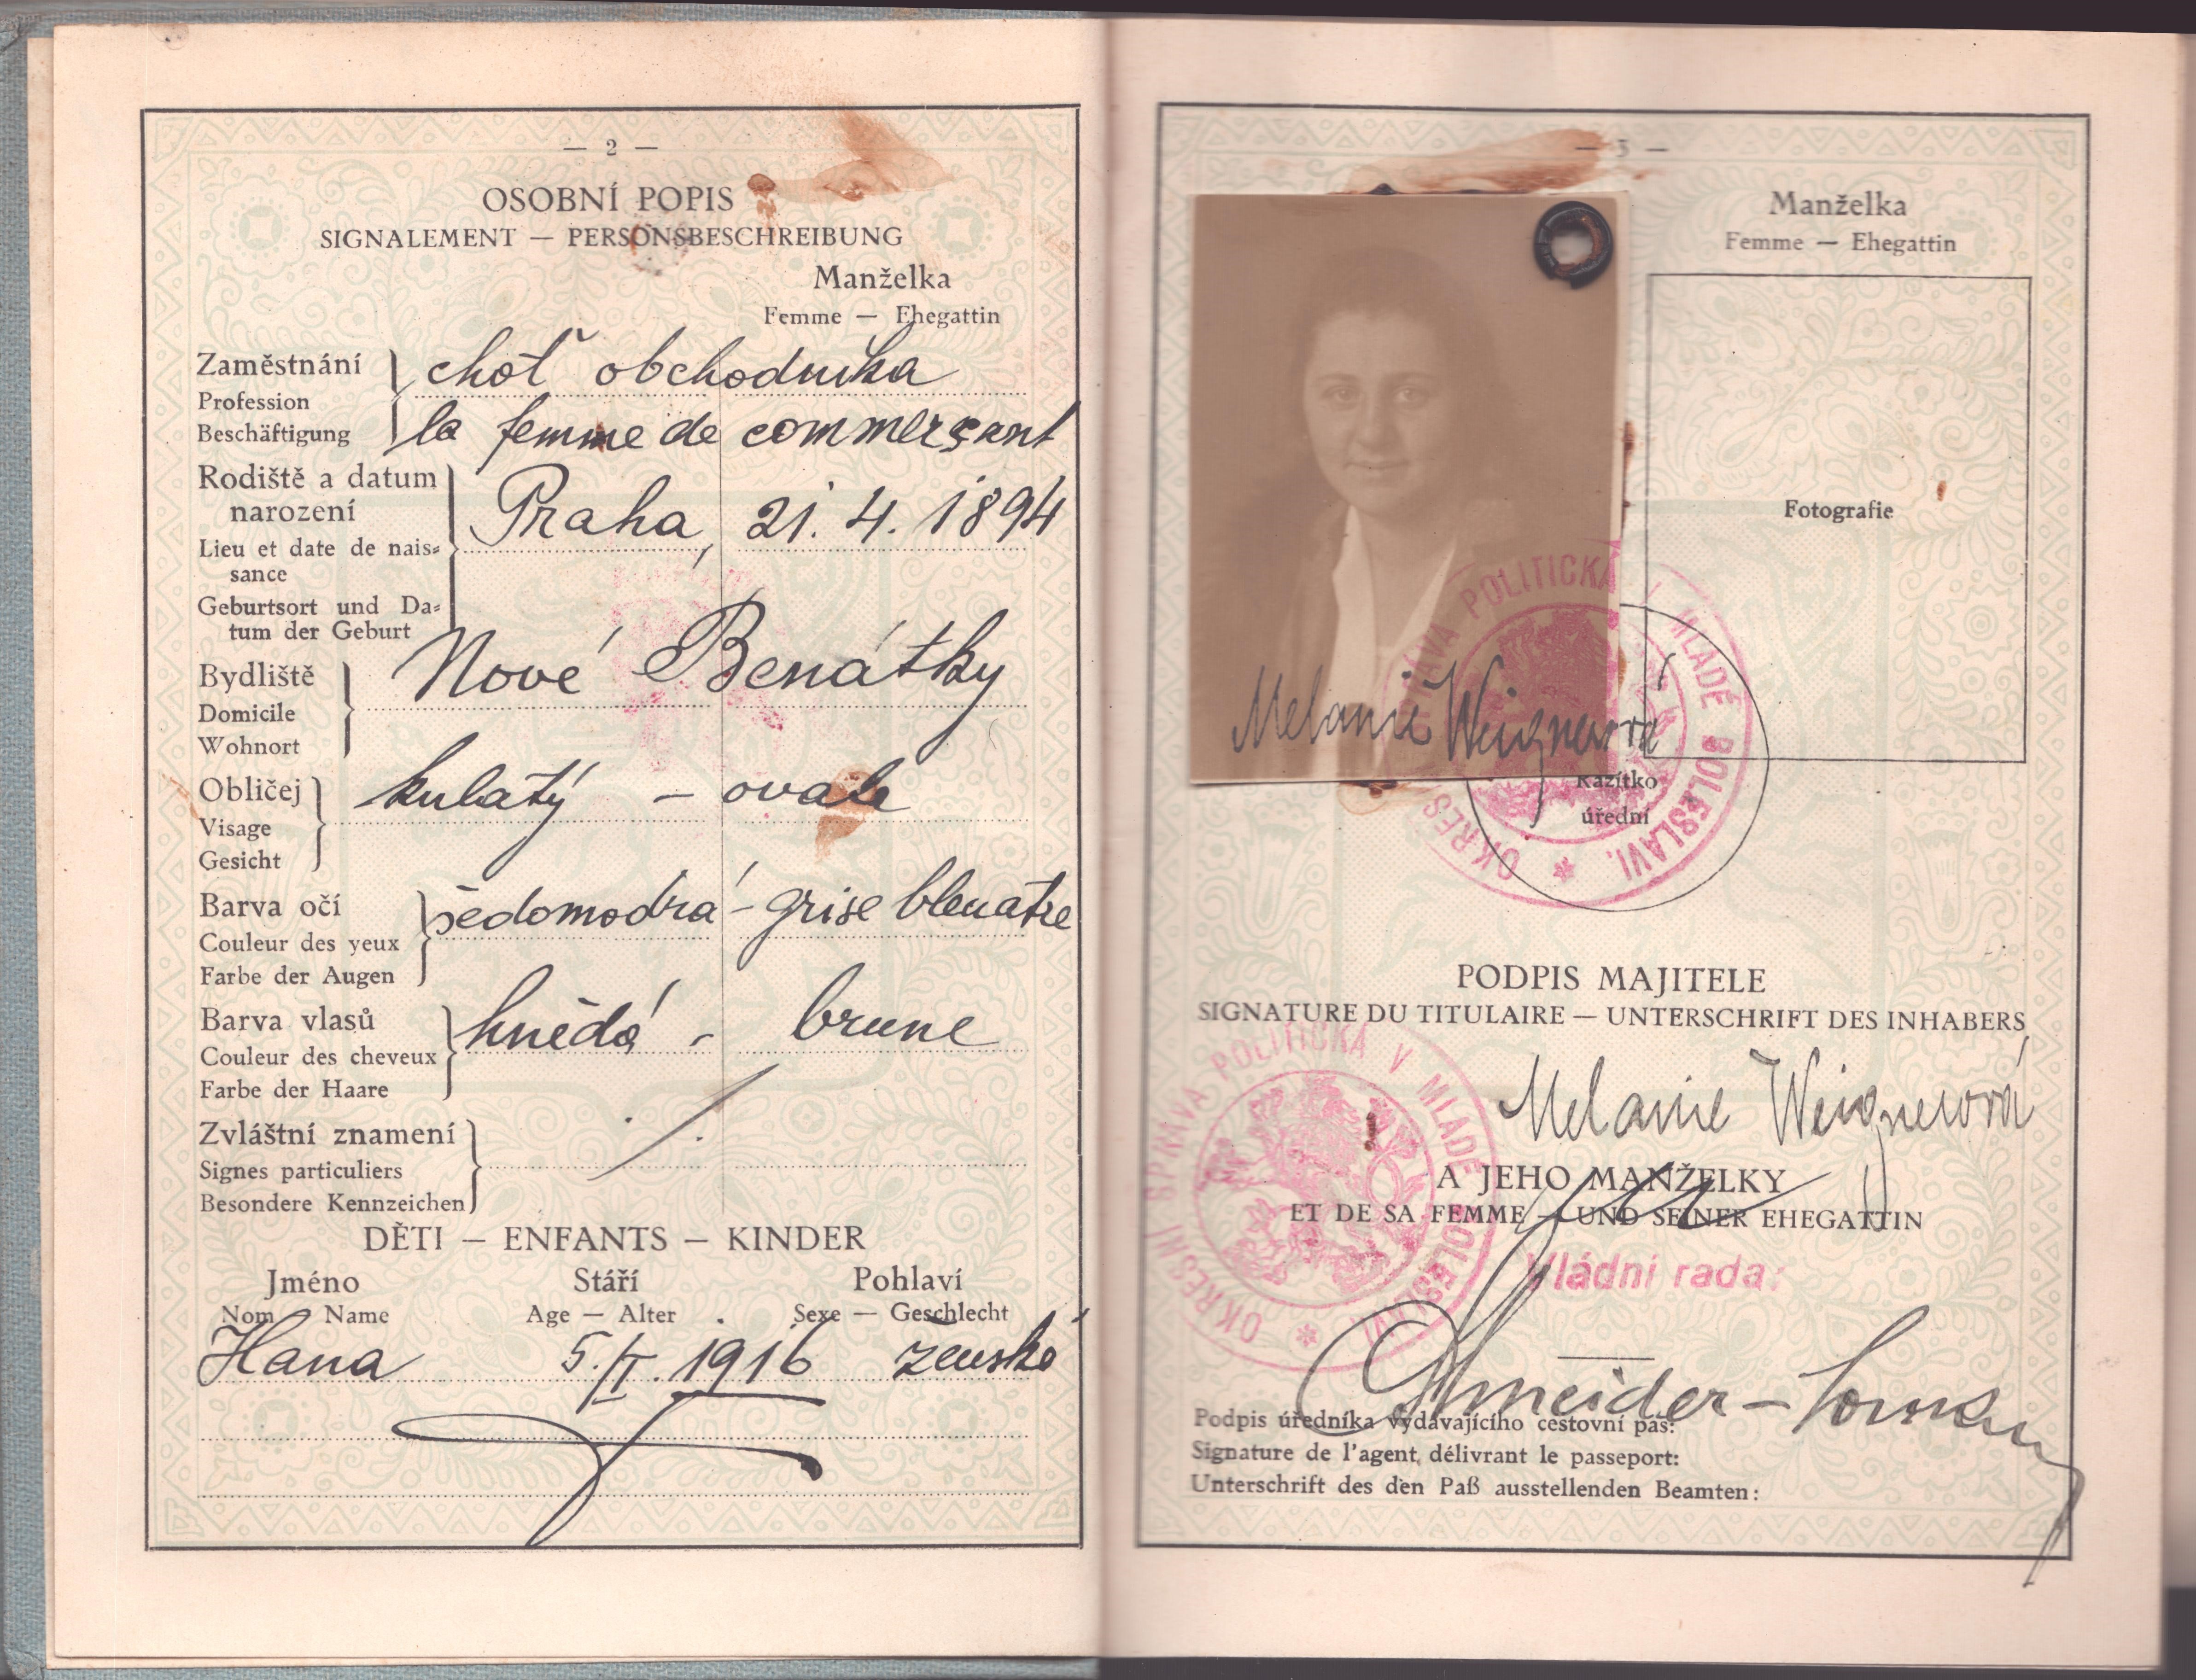 — 2 —
OSOBNÍ POPIS
SIGNALEMENT — PERSONSBESCHREIBUNG
Manželka
Femme — Ehegattin
Zaměstnání choť obchodníka
Profession
Beschäftigung la femme de commerçant
Rodiště a datum
narození Praha, 21. 4. 1894
Lieu et date de nais-
sance
Geburtsort und Da-
tum der Geburt
Bydliště Nové Benátky
Domicile
Wohnort
Obličej kulatý — ovale
Visage
Gesicht
Barva očí šedomodrá - grise bleuatre
Couleur des yeux
Farbe der Augen
Barva vlasů hnědá - brune
Couleur des cheveux
Farbe der Haare
Zvláštní znamení
Signes particuliers
Besondere Kennzeichen
DĚTI — ENFANTS — KINDER
Jméno Stáří Pohlaví
Nom Name Age — Alter Sexe — Geschlecht
Hana 5./I. 1916 ženské
— 3 —
Manželka
Femme — Ehegattin
Fotografie
OKRESNÍ SPRÁVA POLITICKÁ V MLADÉ BOLESLAVI. *
Melanie Weignerová
Razítko
úřední
PODPIS MAJITELE
SIGNATURE DU TITULAIRE — UNTERSCHRIFT DES INHABERS
Melanie Weignerová
OKRESNÍ SPRÁVA POLITICKÁ V MLADÉ BOLESLAVI *
A JEHO MANŽELKY
ET DE SA FEMME — UND SEINER EHEGATTIN
Vládní rada:
Podpis úředníka vydávajícího cestovní pas:
Signature de l'agent délivrant le passeport:
Unterschrift des den Paß ausstellenden Beamten: